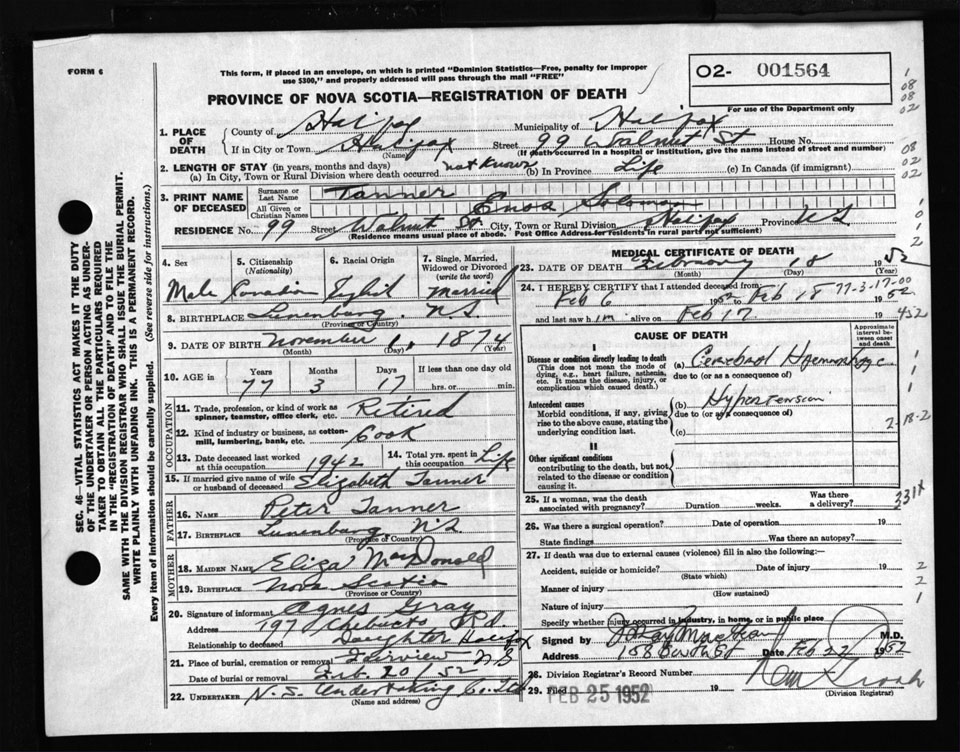 FORM 6
This form, if placed in an envelope, on which is printed "Dominion Statistics—Free, penalty for improper
use $300," and properly addressed will pass through the mail "FREE"
O2- 001564
For use of the Department only
PROVINCE OF NOVA SCOTIA—REGISTRATION OF DEATH
1. PLACE OF DEATH
County of Halifax Municipality of Halifax
If in City or Town Halifax (Name) Street 99 Walnut St House No.
(If death occurred in a hospital or institution, give the name instead of street and number)
2. LENGTH OF STAY (in years, months and days)
(a) In City, Town or Rural Division where death occurred not known (b) In Province Life (c) In Canada (if immigrant)
3. PRINT NAME OF DECEASED
Surname or Last Name Tanner
All Given or Christian Names Enos Solomon
RESIDENCE No. 99 Street Walnut St City, Town or Rural Division Halifax Province NS
(Residence means usual place of abode. Post Office Address for residents in rural parts not sufficient)
4. Sex Male
5. Citizenship (Nationality) Canadian
6. Racial Origin English
7. Single, Married, Widowed or Divorced (write the word) Married
8. BIRTHPLACE Lunenburg. N.S.
(Province or Country)
9. DATE OF BIRTH November 1, 1874
(Month) (Day) (Year)
10. AGE in Years Months Days If less than one day
77 3 17 hrs. or min.
OCCUPATION
11. Trade, profession, or kind of work as spinner, teamster, office clerk, etc. Retired
12. Kind of industry or business, as cotton-mill, lumbering, bank, etc. Cook
13. Date deceased last worked at this occupation 1942
14. Total yrs. spent in this occupation Life
15. If married give name of wife or husband of deceased Elizabeth Tanner
FATHER
16. Name Peter Tanner
17. Birthplace Lunenburg N.S
(Province or Country)
MOTHER
18. MAIDEN NAME Eliza MacDonald
19. Birthplace Nova Scotia
(Province or Country)
20. Signature of informant Agnes Gray
Address 197 Chebucto Rd.
Relationship to deceased Daughter Halifax
21. Place of burial, cremation or removal Fairview N S
Date of burial or removal Feb. 20/52
22. UNDERTAKER N.S. Undertaking Co. Ltd
(Name and address)
MEDICAL CERTIFICATE OF DEATH
23. DATE OF DEATH February 18 1952
(Month) (Day) (Year)
24. I HEREBY CERTIFY that I attended deceased from
Feb 6 1952 Feb 18 1952
77-3-17-00
and last saw him alive on Feb 17 1952
CAUSE OF DEATH
Approximate interval between onset and death
I
Disease or condition directly leading to death
(This does not mean the mode of dying, e.g., heart failure, asthenia, etc. It means the disease, injury, or complication which caused death.)
(a) Cerebral Haemorrhage
due to (or as a consequence of)
Antecedent causes
Morbid conditions, if any, giving rise to the above cause, stating the underlying condition last.
(b) Hypertension
due to (or as a consequence of)
(c)
2-18-2
II
Other significant conditions
contributing to the death, but not related to the disease or condition causing it.
25. If a woman, was the death associated with pregnancy? Duration weeks. Was there a delivery?
331X
26. Was there a surgical operation? Date of operation 19
State findings Was there an autopsy?
27. If death was due to external causes (violence) fill in also the following:—
Accident, suicide or homicide? (State which) Date of injury 19
Manner of injury (How sustained)
Nature of injury
Specify whether injury occurred in industry, in home, or in public place
Signed by M.D.
Address Date Feb 22 1952
28. Division Registrar's Record Number
29. Filed FEB 25 1952 19
(Division Registrar)
SEC. 46—VITAL STATISTICS ACT MAKES IT THE DUTY
OF THE UNDERTAKER OR PERSON ACTING AS UNDER-
TAKER TO OBTAIN ALL THE PARTICULARS REQUIRED
IN THE "REGISTRATION OF DEATH" AND TO FILE THE
SAME WITH THE DIVISION REGISTRAR WHO SHALL ISSUE THE BURIAL PERMIT.
WRITE PLAINLY WITH UNFADING INK. THIS IS A PERMANENT RECORD.
Every item of Information should be carefully supplied. (See reverse side for instructions.)